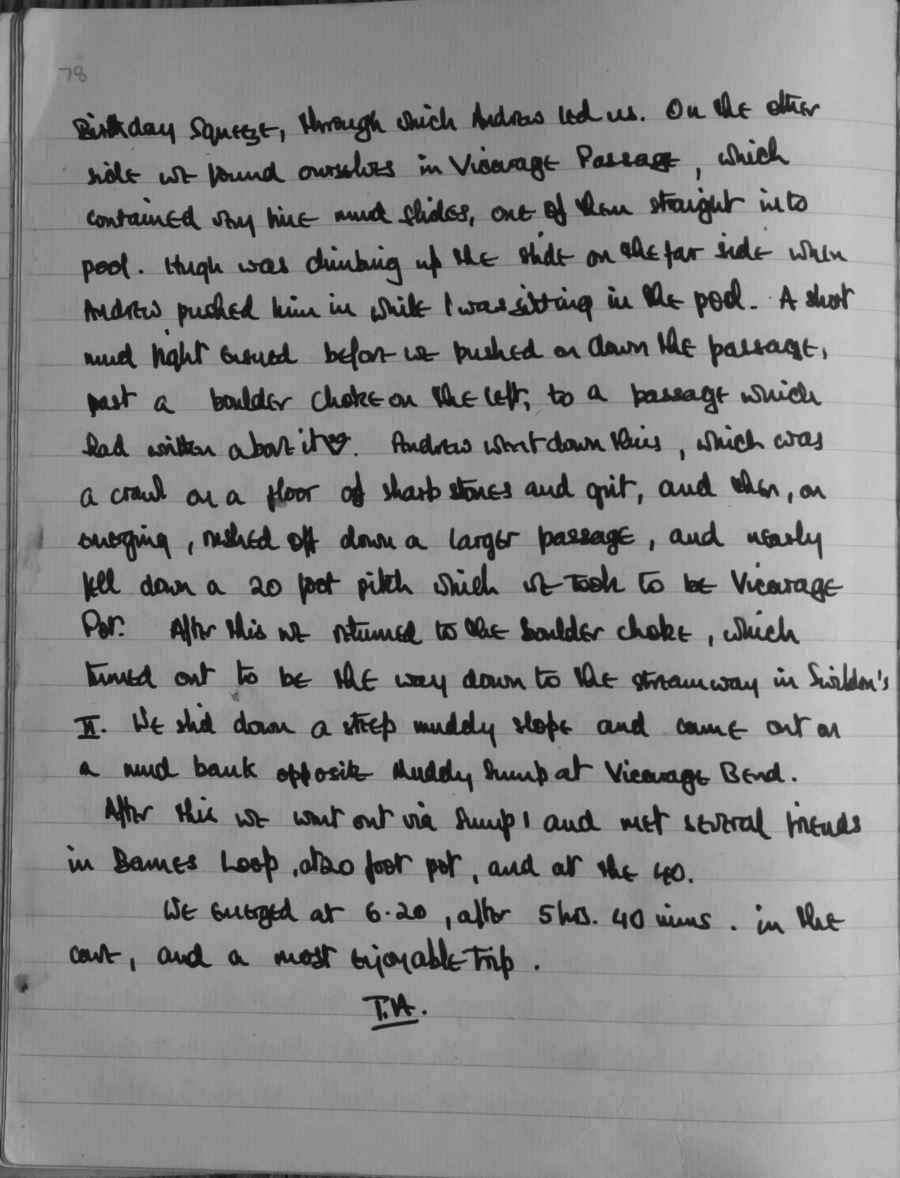 78
Birthday Squeeze, through which Andrew led us. On the other
side we found ourselves in Vicarage Passage, which
contained very fine mud slides, one of them straight into
pool. Hugh was climbing up the slide on the far side when
Andrew pushed him in while I was sitting in the pool. A short
mud fight ensued before we pushed on down the passage,
past a boulder choke on the left, to a passage which
had written above it. Andrew went down this, which was
a crawl on a floor of sharp stones and grit, and then, on
emerging, rushed off down a larger passage, and nearly
fell down a 20 foot pitch which we took to be Vicarage
Pot. After this we returned to the boulder choke, which
turned out to be the way down to the streamway in Swildon's
II. We slid down a steep muddy slope and came out on
a mud bank opposite Muddy Sump at Vicarage Bend.
After this we went out via Sump 1 and met several friends
in Barnes Loop, at 20 foot pot, and at the 40.
We emerged at 6.20, after 5 hrs. 40 mins. in the
cave, and a most enjoyable trip.